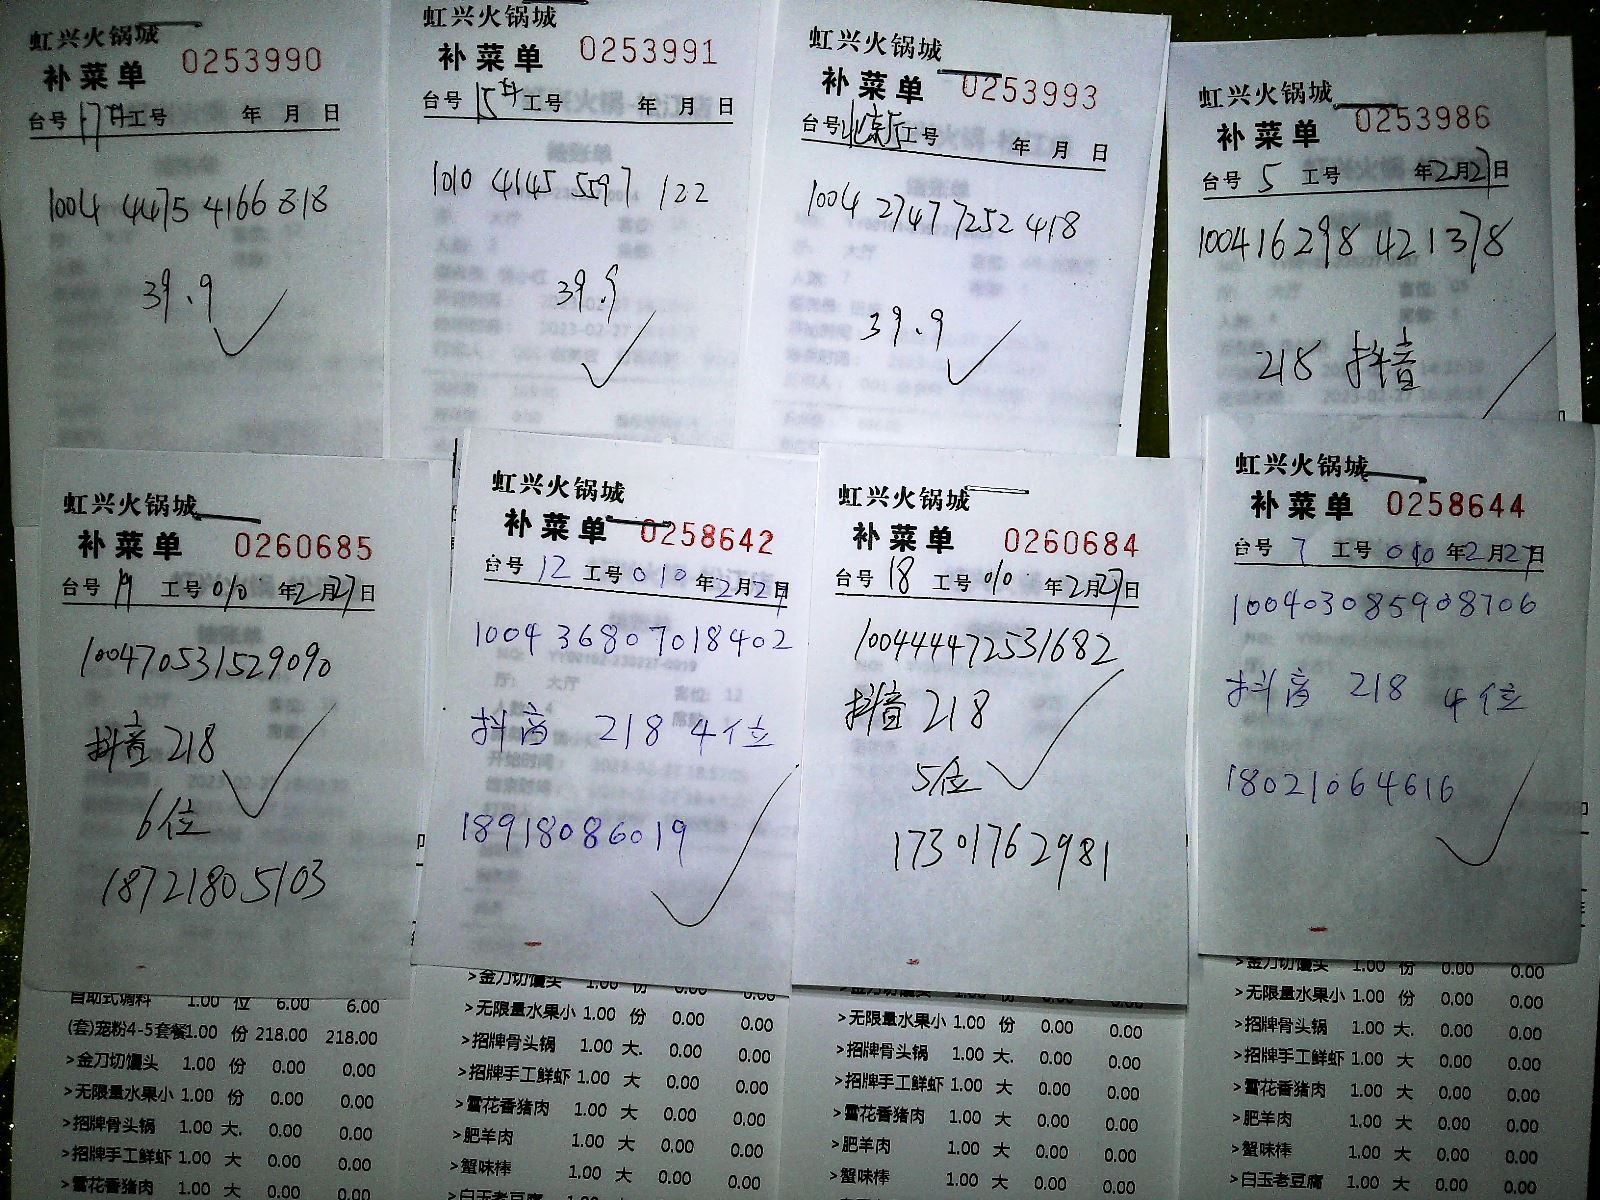 虹兴火锅城
补菜单 0253990
台号 17 工号 年 月 日
1004 4475 4166 818
39.9
虹兴火锅城
补菜单 0253991
台号 15 工号 年 月 日
1010 4145 5597 122
39.9
虹兴火锅城
补菜单 0253993
台号 北京厅 工号 年 月 日
1004 2747 7252 418
39.9
虹兴火锅城
补菜单 0253986
台号 5 工号 年2月27日
100416298421378
218 抖音
虹兴火锅城
补菜单 0260685
台号 19 工号 010 年2月27日
100470531529090
抖音 218
6位
18721805103
自助式调料 1.00 位 6.00 6.00
(套)宠粉4-5套餐1.00 份 218.00 218.00
>金刀切馒头 1.00 份 0.00 0.00
>无限量水果小 1.00 份 0.00 0.00
>招牌骨头锅 1.00 大. 0.00 0.00
>招牌手工鲜虾 1.00 大 0.00 0.00
>雪花香猪肉 1.00 大 0.00 0.00
虹兴火锅城
补菜单 0258642
台号 12 工号 010 年2月27日
1004 36807018402
抖音 218 4位
18918086019
>金刀切馒头 1.00 份 0.00 0.00
>无限量水果小 1.00 份 0.00 0.00
>招牌骨头锅 1.00 大. 0.00 0.00
>招牌手工鲜虾 1.00 大 0.00 0.00
>雪花香猪肉 1.00 大 0.00 0.00
>肥羊肉 1.00 大 0.00 0.00
>蟹味棒 1.00 大 0.00 0.00
>白玉老豆腐 1.00 大 0.00 0.00
虹兴火锅城
补菜单 0260684
台号 18 工号 010 年2月27日
100444472531682
抖音 218
5位
17301762981
>金刀切馒头 1.00 份 0.00 0.00
>无限量水果小 1.00 份 0.00 0.00
>招牌骨头锅 1.00 大. 0.00 0.00
>招牌手工鲜虾 1.00 大 0.00 0.00
>雪花香猪肉 1.00 大 0.00 0.00
>肥羊肉 1.00 大 0.00 0.00
>蟹味棒 1.00 大 0.00 0.00
虹兴火锅城
补菜单 0258644
台号 7 工号 010 年2月27日
100403085908706
抖音 218 4位
18021064616
>金刀切馒头 1.00 份 0.00 0.00
>无限量水果小 1.00 份 0.00 0.00
>招牌骨头锅 1.00 大. 0.00 0.00
>招牌手工鲜虾 1.00 大 0.00 0.00
>雪花香猪肉 1.00 大 0.00 0.00
>肥羊肉 1.00 大 0.00 0.00
>蟹味棒 1.00 大 0.00 0.00
>白玉老豆腐 1.00 大 0.00 0.00